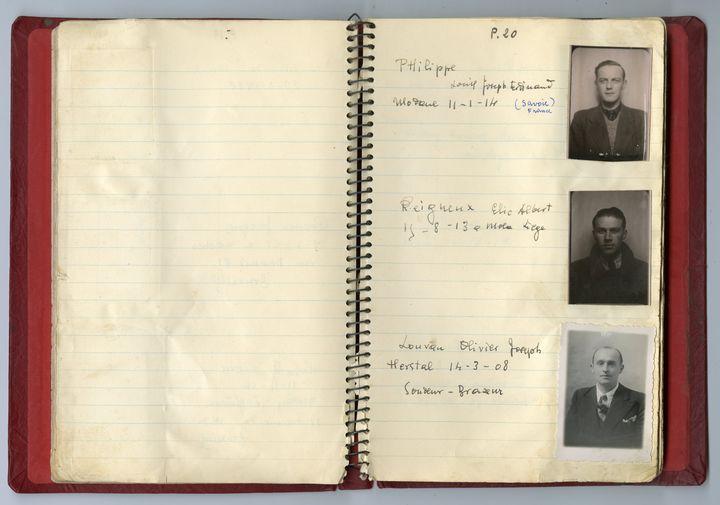 P.20
Philippe
Louis Joseph Edmond
Modane 11-1-14 (Savoie)
France
Reigneux Elie Albert
15-8-13 a Liege
Louvan Olivier Joseph
Herstal 14-3-08
Soudeur - Braseur